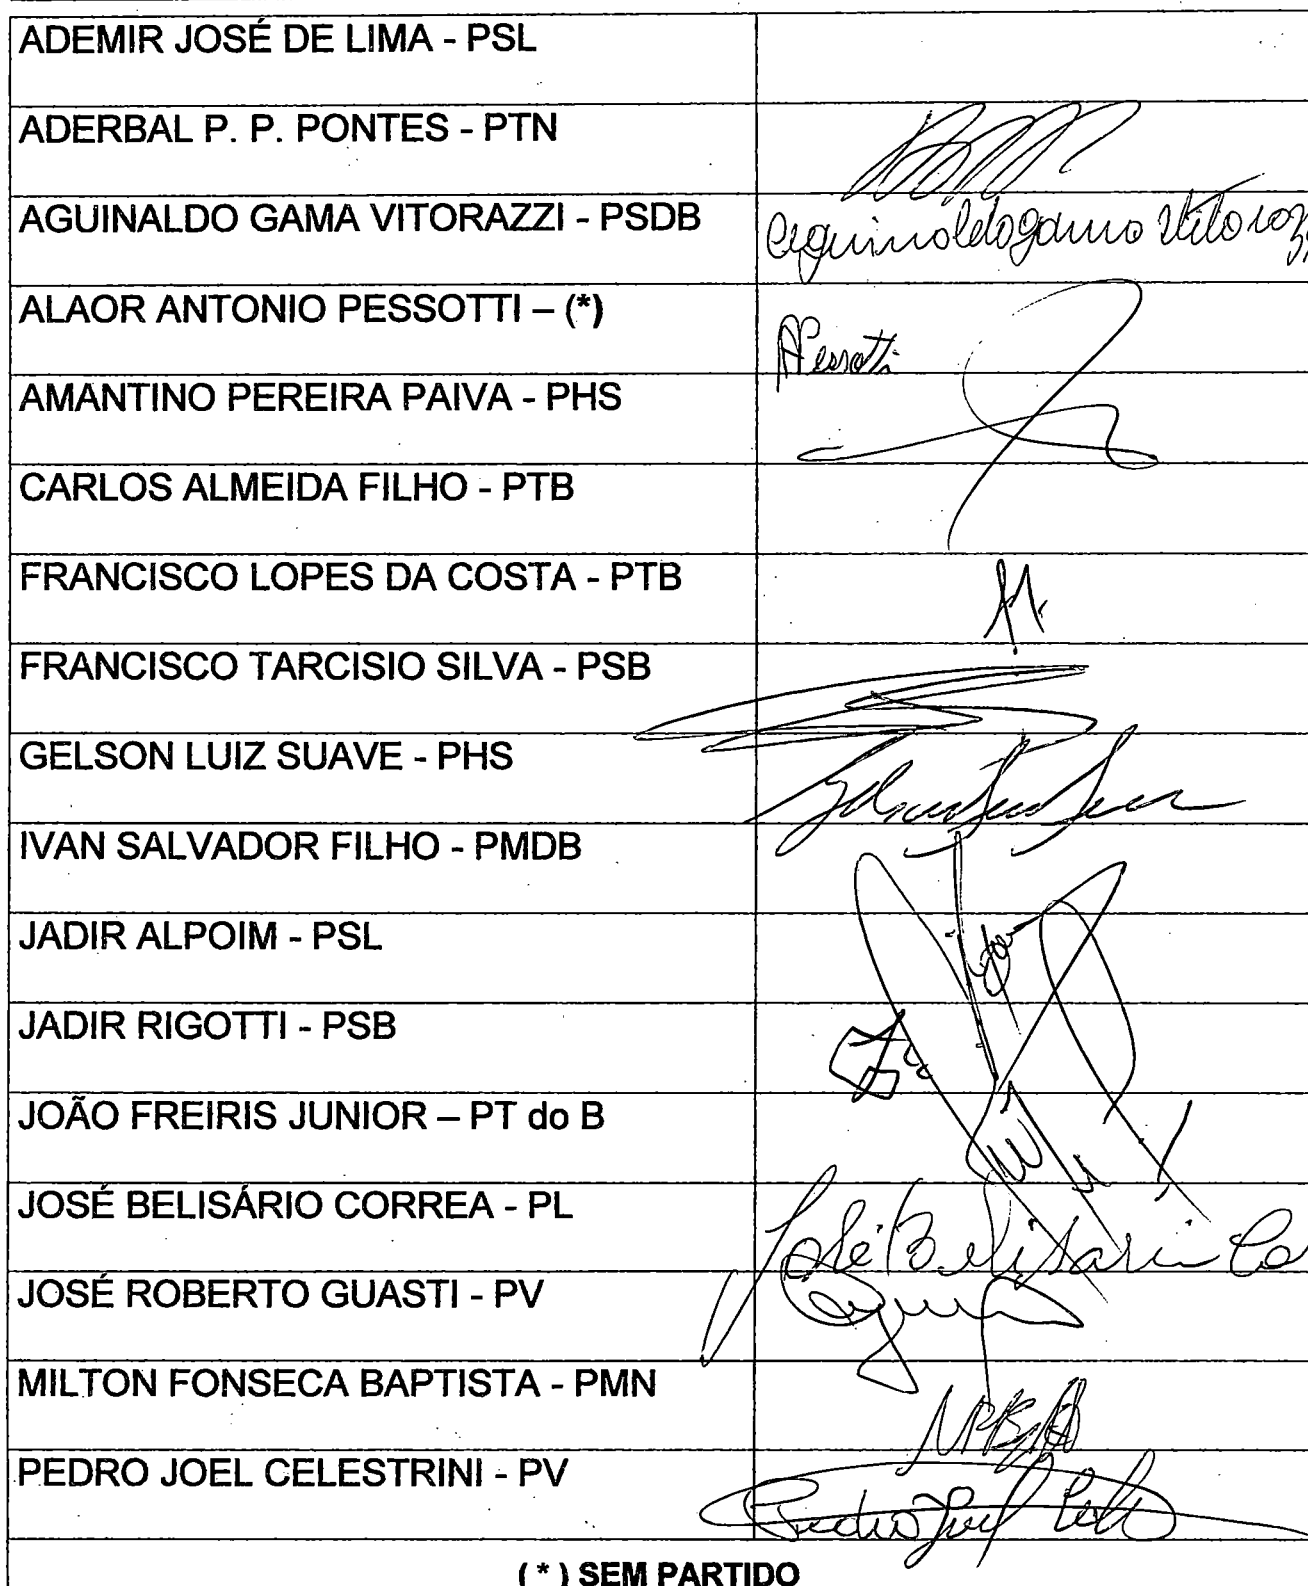 ADEMIR JOSÉ DE LIMA - PSL
ADERBAL P. P. PONTES - PTN
AGUINALDO GAMA VITORAZZI - PSDB
Aguinaldo gama Vitorazzi
ALAOR ANTONIO PESSOTTI – (*)
APessotti
AMANTINO PEREIRA PAIVA - PHS
CARLOS ALMEIDA FILHO - PTB
FRANCISCO LOPES DA COSTA - PTB
FRANCISCO TARCISIO SILVA - PSB
GELSON LUIZ SUAVE - PHS
IVAN SALVADOR FILHO - PMDB
JADIR ALPOIM - PSL
JADIR RIGOTTI - PSB
JOÃO FREIRIS JUNIOR – PT do B
JOSÉ BELISÁRIO CORREA - PL
José Belisario Co
JOSÉ ROBERTO GUASTI - PV
MILTON FONSECA BAPTISTA - PMN
PEDRO JOEL CELESTRINI - PV
Pedro Joel
( * ) SEM PARTIDO